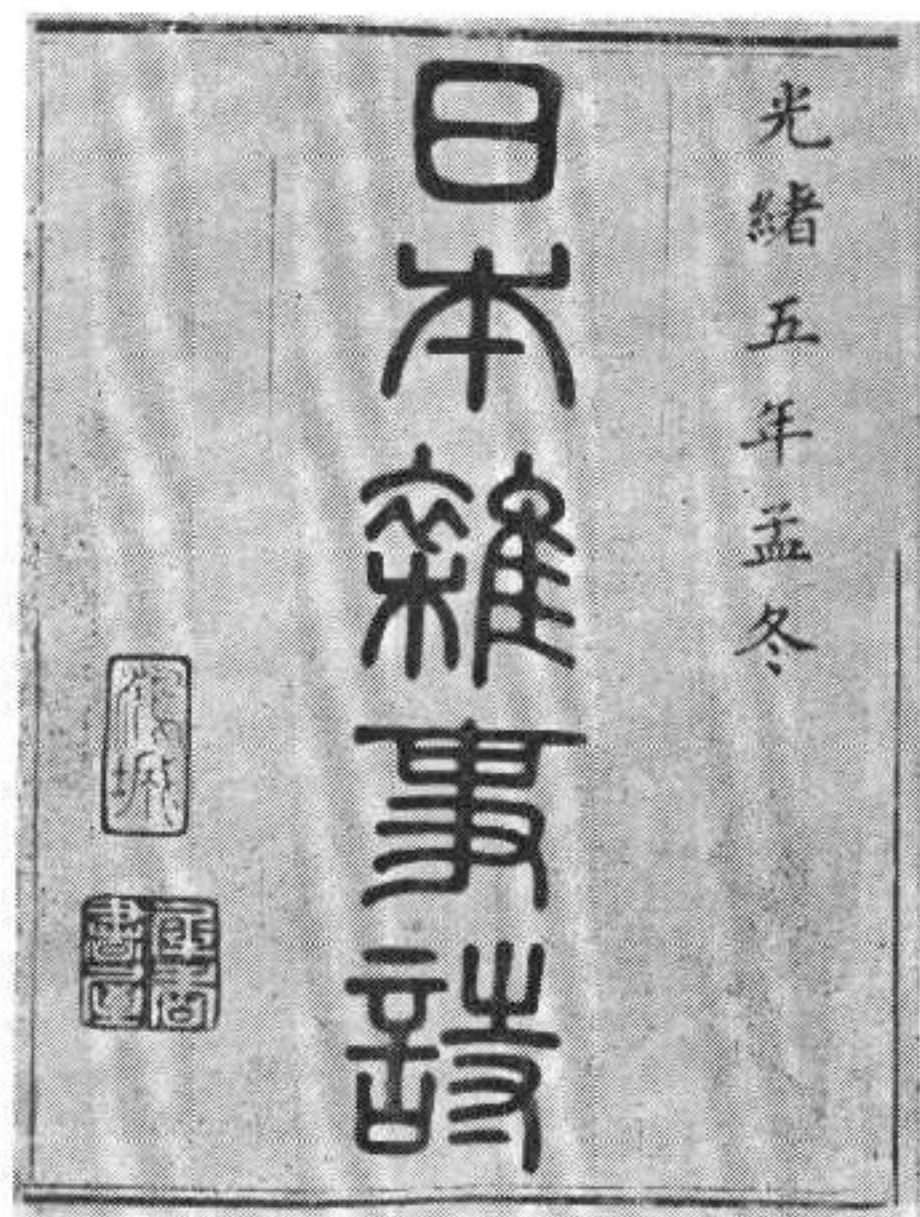 光緒五年孟冬
日本雜事詩